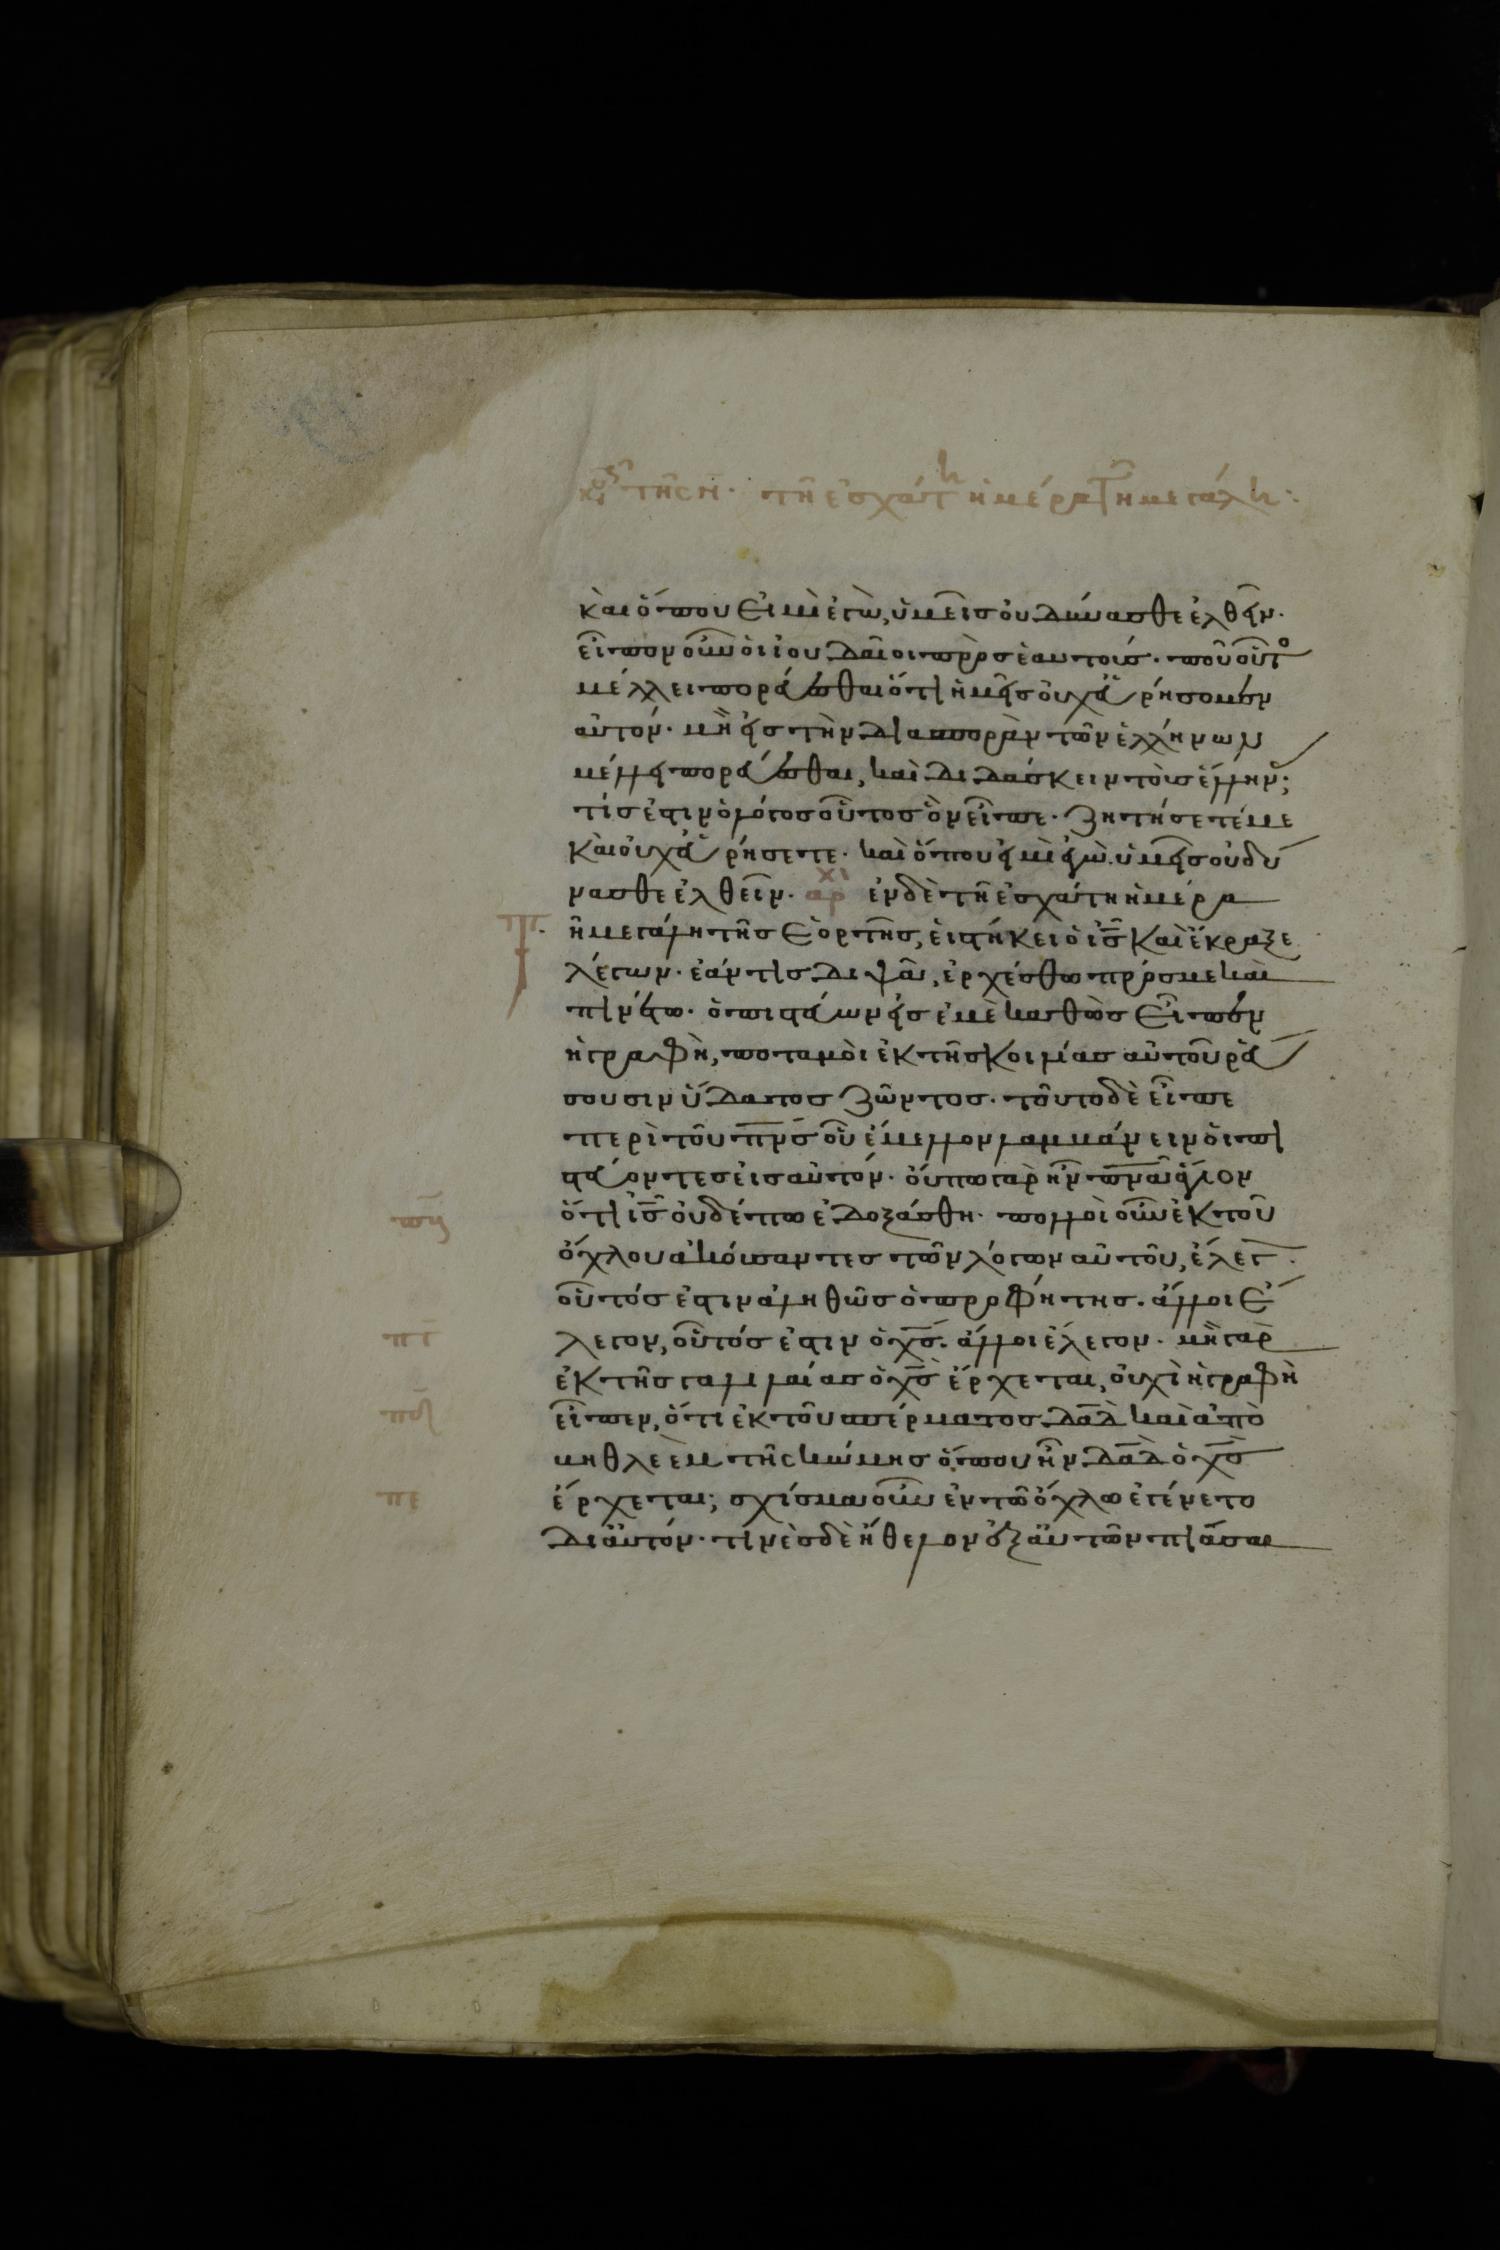 τῆς Ν. τῆ ἐσχάτη ἡμέρα τῆ μεγάλη:
καὶ ὅπου εἰμὶ ἐγὼ, ὑμεῖς οὐ δύνασθε ἐλθεῖν.
εἶπον οὖν οἱ ἰουδαῖοι πρὸς ἑαυτούς. ποῦ οὗτο
μέλλει πορεύεσθαι ὅτι ἡμεῖς οὐχ εὑρήσομεν
αὐτόν. μὴ εἰς τὴν διασπορὰν τῶν ἑλλήνων
μέλλει πορεύεσθαι, καὶ διδάσκειν τοὺς ἕλλην;
τίς ἐστιν ὁ λόγος οὗτος ὃν εἶπε. ζητήσετέ με
καὶ οὐχ εὑρήσετε. καὶ ὅπου εἰμὶ ἐγὼ ὑμεῖς οὐ δύ
νασθε ἐλθεῖν. αρχ ἐν δὲ τῆ ἐσχάτη ἡμέρα
τῆ μεγάλη τῆς ἑορτῆς, εἱστήκει ὁ ις καὶ ἔκραξε
λέγων. ἐάν τις διψᾶ, ἐρχέσθω πρός με καὶ
πινέτω. ὁ πιστεύων εἰς ἐμὲ καθὼς εἶπεν
ἡ γραφὴ, ποταμοὶ ἐκ τῆς κοιλίας αὐτοῦ ῥεύ
σουσιν ὕδατος ζῶντος. τοῦτο δὲ εἶπε
περὶ τοῦ πνς οὗ ἔμελλον λαμβάνειν οἱ πι
στεύοντες εἰς αὐτόν. οὔπω γὰρ ἦν πνα ἅγιον
ὅτι ις οὐδέπω ἐδοξάσθη. πολλοὶ οὖν ἐκ τοῦ
ὄχλου ἀκούσαντες τῶν λόγων αὐτοῦ, ἔλεγ.
οὗτός ἐστιν ἀληθῶς ὁ προφήτης. ἄλλοι ἔ
λεγον, οὗτός ἐστιν ὁ χς. ἄλλοι ἔλεγον. μὴ γὰρ
ἐκ τῆς γαλιλαίας ὁ χς ἔρχεται, οὐχὶ ἡ γραφὴ
εἶπεν, ὅτι ἐκ τοῦ σπέρματος δαδ καὶ ἀπὸ
βηθλεὲμ τῆς κώμης ὅπου ἦν δαδ ὁ χς
ἔρχεται; σχίσμα οὖν ἐν τῶ ὄχλω ἐγένετο
δι αὐτόν. τινὲς δὲ ἤθελον ἐξ αὐτῶν πιάσαι